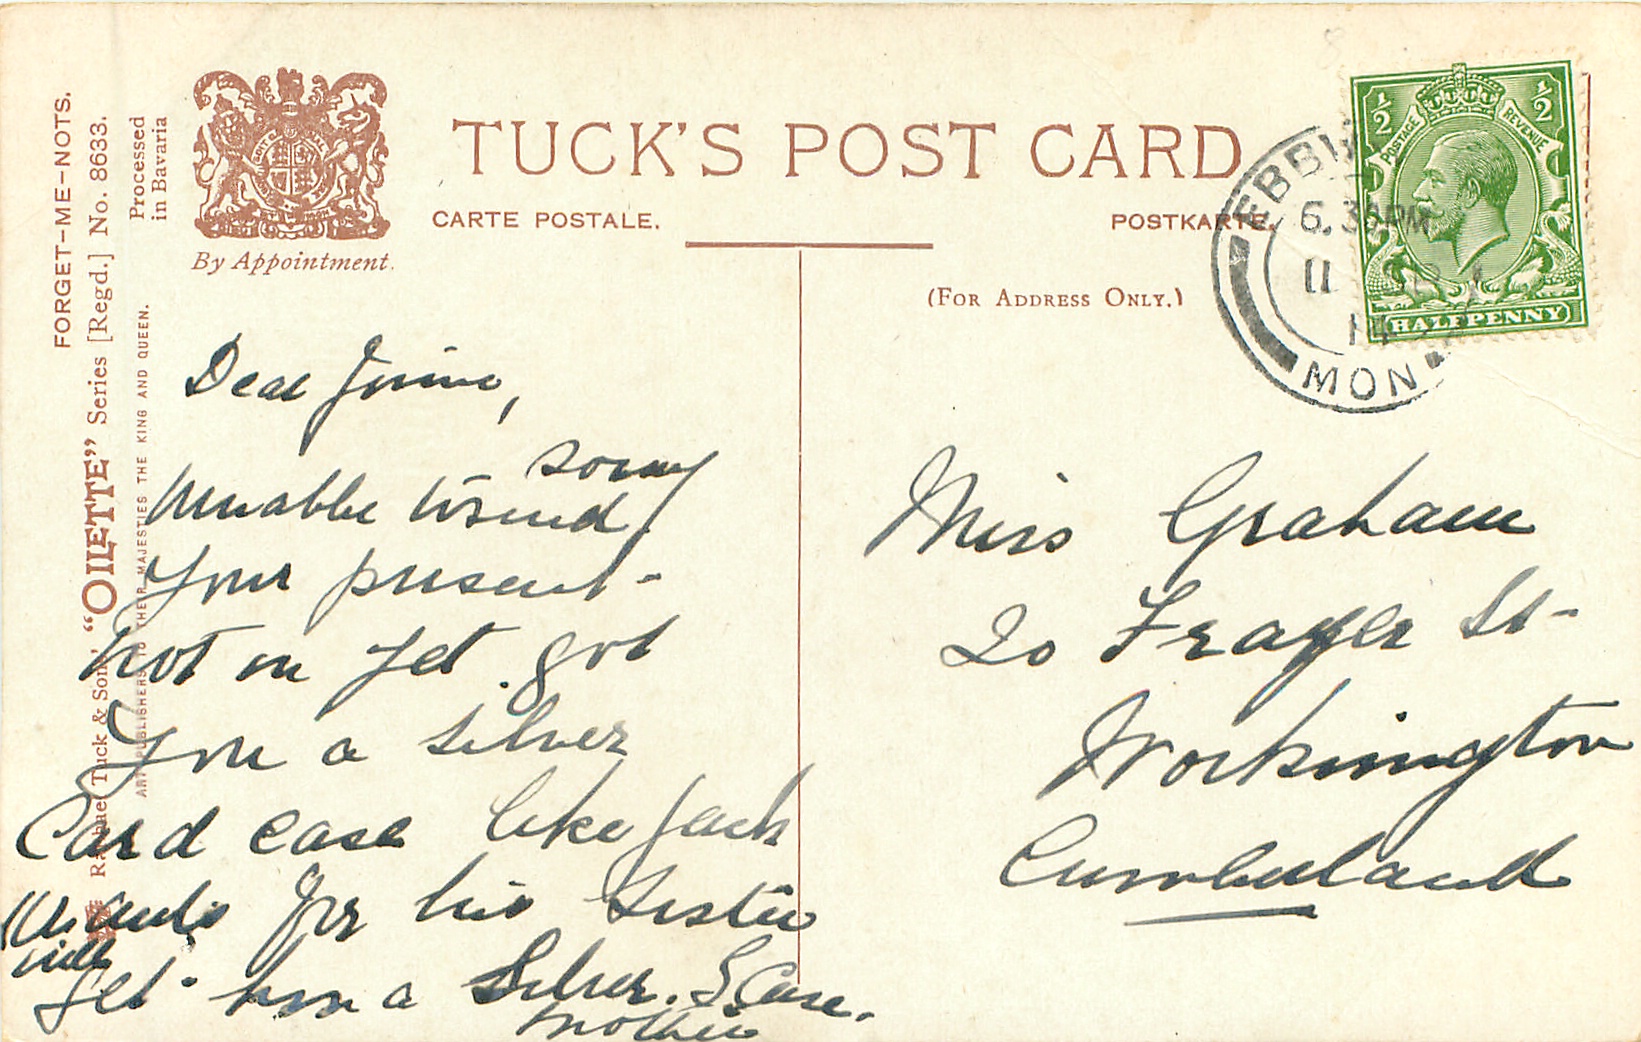 FORGET-ME-NOTS.
Raphael Tuck & Sons' "OILETTE" Series [Regd.] No. 8633.
ART PUBLISHERS TO THEIR MAJESTIES THE KING AND QUEEN.
Processed
in Bavaria
By Appointment.
TUCK'S POST CARD
CARTE POSTALE.
POSTKARTE.
(FOR ADDRESS ONLY.)
½ ½
POSTAGE REVENUE
HALFPENNY
EBBW
6.30 PM
11
14
MON
Dear
sorry
Unable to send
Your present-
not on yet. got
You a silver
Card case like Jack
wants for his Sister
will
get him a Silver. S. Case.
Mother
Miss Graham
20 Frazer St-
Workington
Cumberland